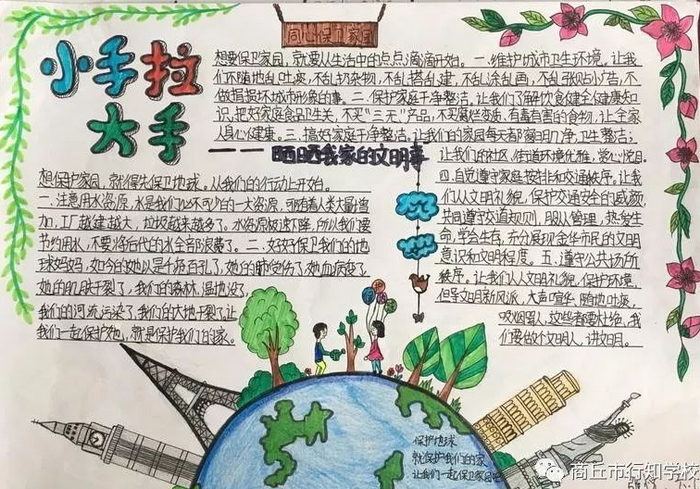 同心保卫家园
小手拉
大手
想要保卫家园,就要从生活中的点点滴滴开始。一.维护城市卫生环境,让我
们不随地乱吐痰,不乱扔杂物,不乱搭乱建,不乱涂乱画,不乱张贴小广告,不
做损坏城市形象的事。二.保护家庭干净整洁,让我们了解饮食健全健康知
识,把好家庭食品卫生关,不买"三无"产品,不买腐烂变质,有毒有害的食物,让全家
人身心健康。三.搞好家庭干净整洁,让我们的家每天都窗明几净,卫生整洁;
——晒晒我家的文明事
让我们的社区,街道环境优雅,赏心悦目。
四.自觉遵守家庭秩序和交通秩序。让我
们从文明礼貌,保护交通安全的
共同遵守交通规则,服从管理,热爱生
命,学会生存,充分展现金华市民的文明
意识和文明程度。五.遵守公共场所
秩序。让我们从文明礼貌,保护环境,
倡导文明新风,大声喧华,随地吐痰,
吸烟,这些都要杜绝,我
们要做个文明人,讲文明。
想保护家园,就得先保卫地球。从我们的行动上开始。
一.注意用水资源,水是我们必不可少的一大资源,可随着人类大量增
加,工厂越建越大,垃圾越来越多了。水资源极速下降,所以我们要
节约用水,不要将后代的水全部浪费了。二.好好保卫我们的地
球妈妈,如今的她以是千疮百孔了,她的肺受伤了,她血病变了
她的肌肤干裂了,我们的森林.湿地没了,
我们的河流污染了,我们的大地干裂了,让
我们一起保护她,就是保护我们的家。
保护地球
就保护我们的家
让我们一起保卫家园吧
商丘市行知学校